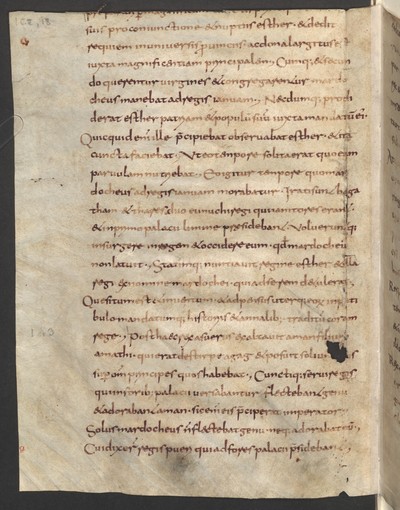 suis pro coniunctione & nuptiis esther · & dedit
requiem in uniuersis prouinciis ac dona largitus est
iuxta magnificentiam principalem · Cumq; & secun
do quererentur uirgines & congregarentur mardo
cheus manebat ad regis ianuam · Necdumq; prodi
derat esther patriam & populū suū iuxta mandatū ei
Quicquid enim ille p̄cipiebat obseruabat esther & ita
cuncta faciebat · Ut eo tempore solita erat quo eam
paruulam nutriebat · Eo igitur tempore quo mar
docheus ad regis ianuam morabatur · Irati sunt baga
than & thares duo eunuchi regis qui ianitores erant
& in primo palacii limine presidebant · Uoluerunt q;
insurgere in regem & occidere eum · qd mardocheū
non latuit · Statimq; nuntiauit regine esther & illa
regi ex nomine mardochei · qui ad se rem detulerat ·
Quesitum est & inuentum & adpensus uterq; eoꝝ in pati
bulo mandatumq; historiis & annalib; traditū coram
rege · Post haec rex asuerus exaltauit aman filiū
amathi · qui erat de stirpe agag & posuit soliū
suꝑ om̄s principes quos habebat · Cunctiq; serui regis
qui in foribꝰ palacii uersabantur flectebant genu
& adorabant aman · sic enim eis p̄ceperat imperator
Solus mardocheus ñ flectebat genu neq; adorabat eū ·
Cui dixerunt regis pueri qui ad fores palacii p̄sidebant